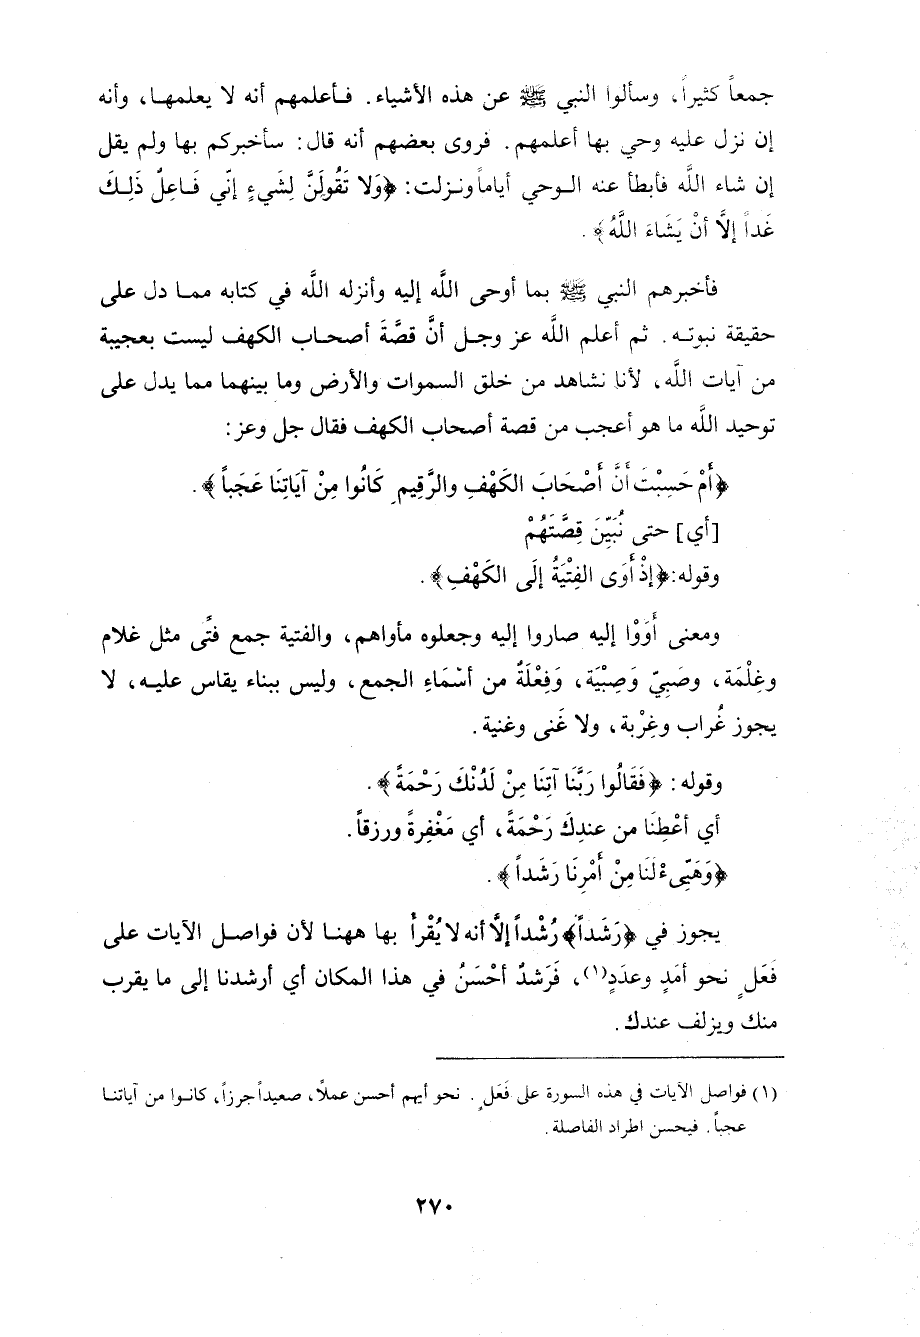 جمعاً كثيراً، وسألوا النبي ﷺ عن هذه الأشياء. فأعلمهم أنه لا يعلمها، وأنه
إن نزل عليه وحي بها أعلمهم. فروى بعضهم أنه قال: سأخبركم بها ولم يقل
إن شاء اللَّه فأبطأ عنه الوحي أياماً ونزلت: ﴿وَلا تَقُولَنَّ لِشَيءٍ إنِّي فَاعِلٌ ذَلِكَ
غَداً إلاَّ أنْ يَشَاءَ اللَّهُ﴾.
فأخبرهم النبي ﷺ بما أوحى اللَّه إليه وأنزله اللَّه في كتابه مما دل على
حقيقة نبوته. ثم أعلم اللَّه عز وجل أنَّ قصَّةَ أصحاب الكهف ليست بعجيبة
من آيات اللَّه، لأنا نشاهد من خلق السموات والأرض وما بينهما مما يدل على
توحيد اللَّه ما هو أعجب من قصة أصحاب الكهف فقال جل وعز:
﴿أَمْ حَسِبْتَ أَنَّ أَصْحَابَ الكَهْفِ والرَّقِيمِ كَانُوا مِنْ آيَاتِنَا عَجَباً﴾.
[أي] حتى نُبَيِّنَ قِصَّتَهُمْ
وقوله: ﴿إذْ أَوَى الفِتْيَةُ إلَى الكَهْفِ﴾.
ومعنى أَوَوْا إليه صاروا إليه وجعلوه مأواهم، والفتية جمع فتًى مثل غلام
وغِلْمَة، وصَبِيّ وَصِبْيَة، وَفِعْلَةٌ من أسْمَاءِ الجمع، وليس ببناء يقاس عليه، لا
يجوز غُراب وغِرْبة، ولا غَنى وغنية.
وقوله: ﴿فَقَالُوا رَبَّنَا آتِنَا مِنْ لَدُنْكَ رَحْمَةً﴾.
أي أعْطِنَا من عندِكَ رَحْمَةً، أي مَغْفِرةً ورزقاً.
﴿وَهَيِّىءْ لَنَا مِنْ أَمْرِنَا رَشَداً﴾.
يجوز في ﴿رَشَداً﴾ رُشْداً إلاَّ أنه لا يُقْرأ بها ههنا لأن فواصل الآيات على
فَعَلٍ نحو أمَدٍ وعدَدٍ(١)، فَرَشدٌ أحْسَنُ في هذا المكان أي أرشدنا إلى ما يقرب
منك ويزلف عندك.
(١) فواصل الآيات في هذه السورة على فَعَلٍ. نحو أيهم أحسن عملاً، صعيداً جرزاً، كانوا من آياتنا
عجباً. فيحسن اطراد الفاصلة.
٢٧٠